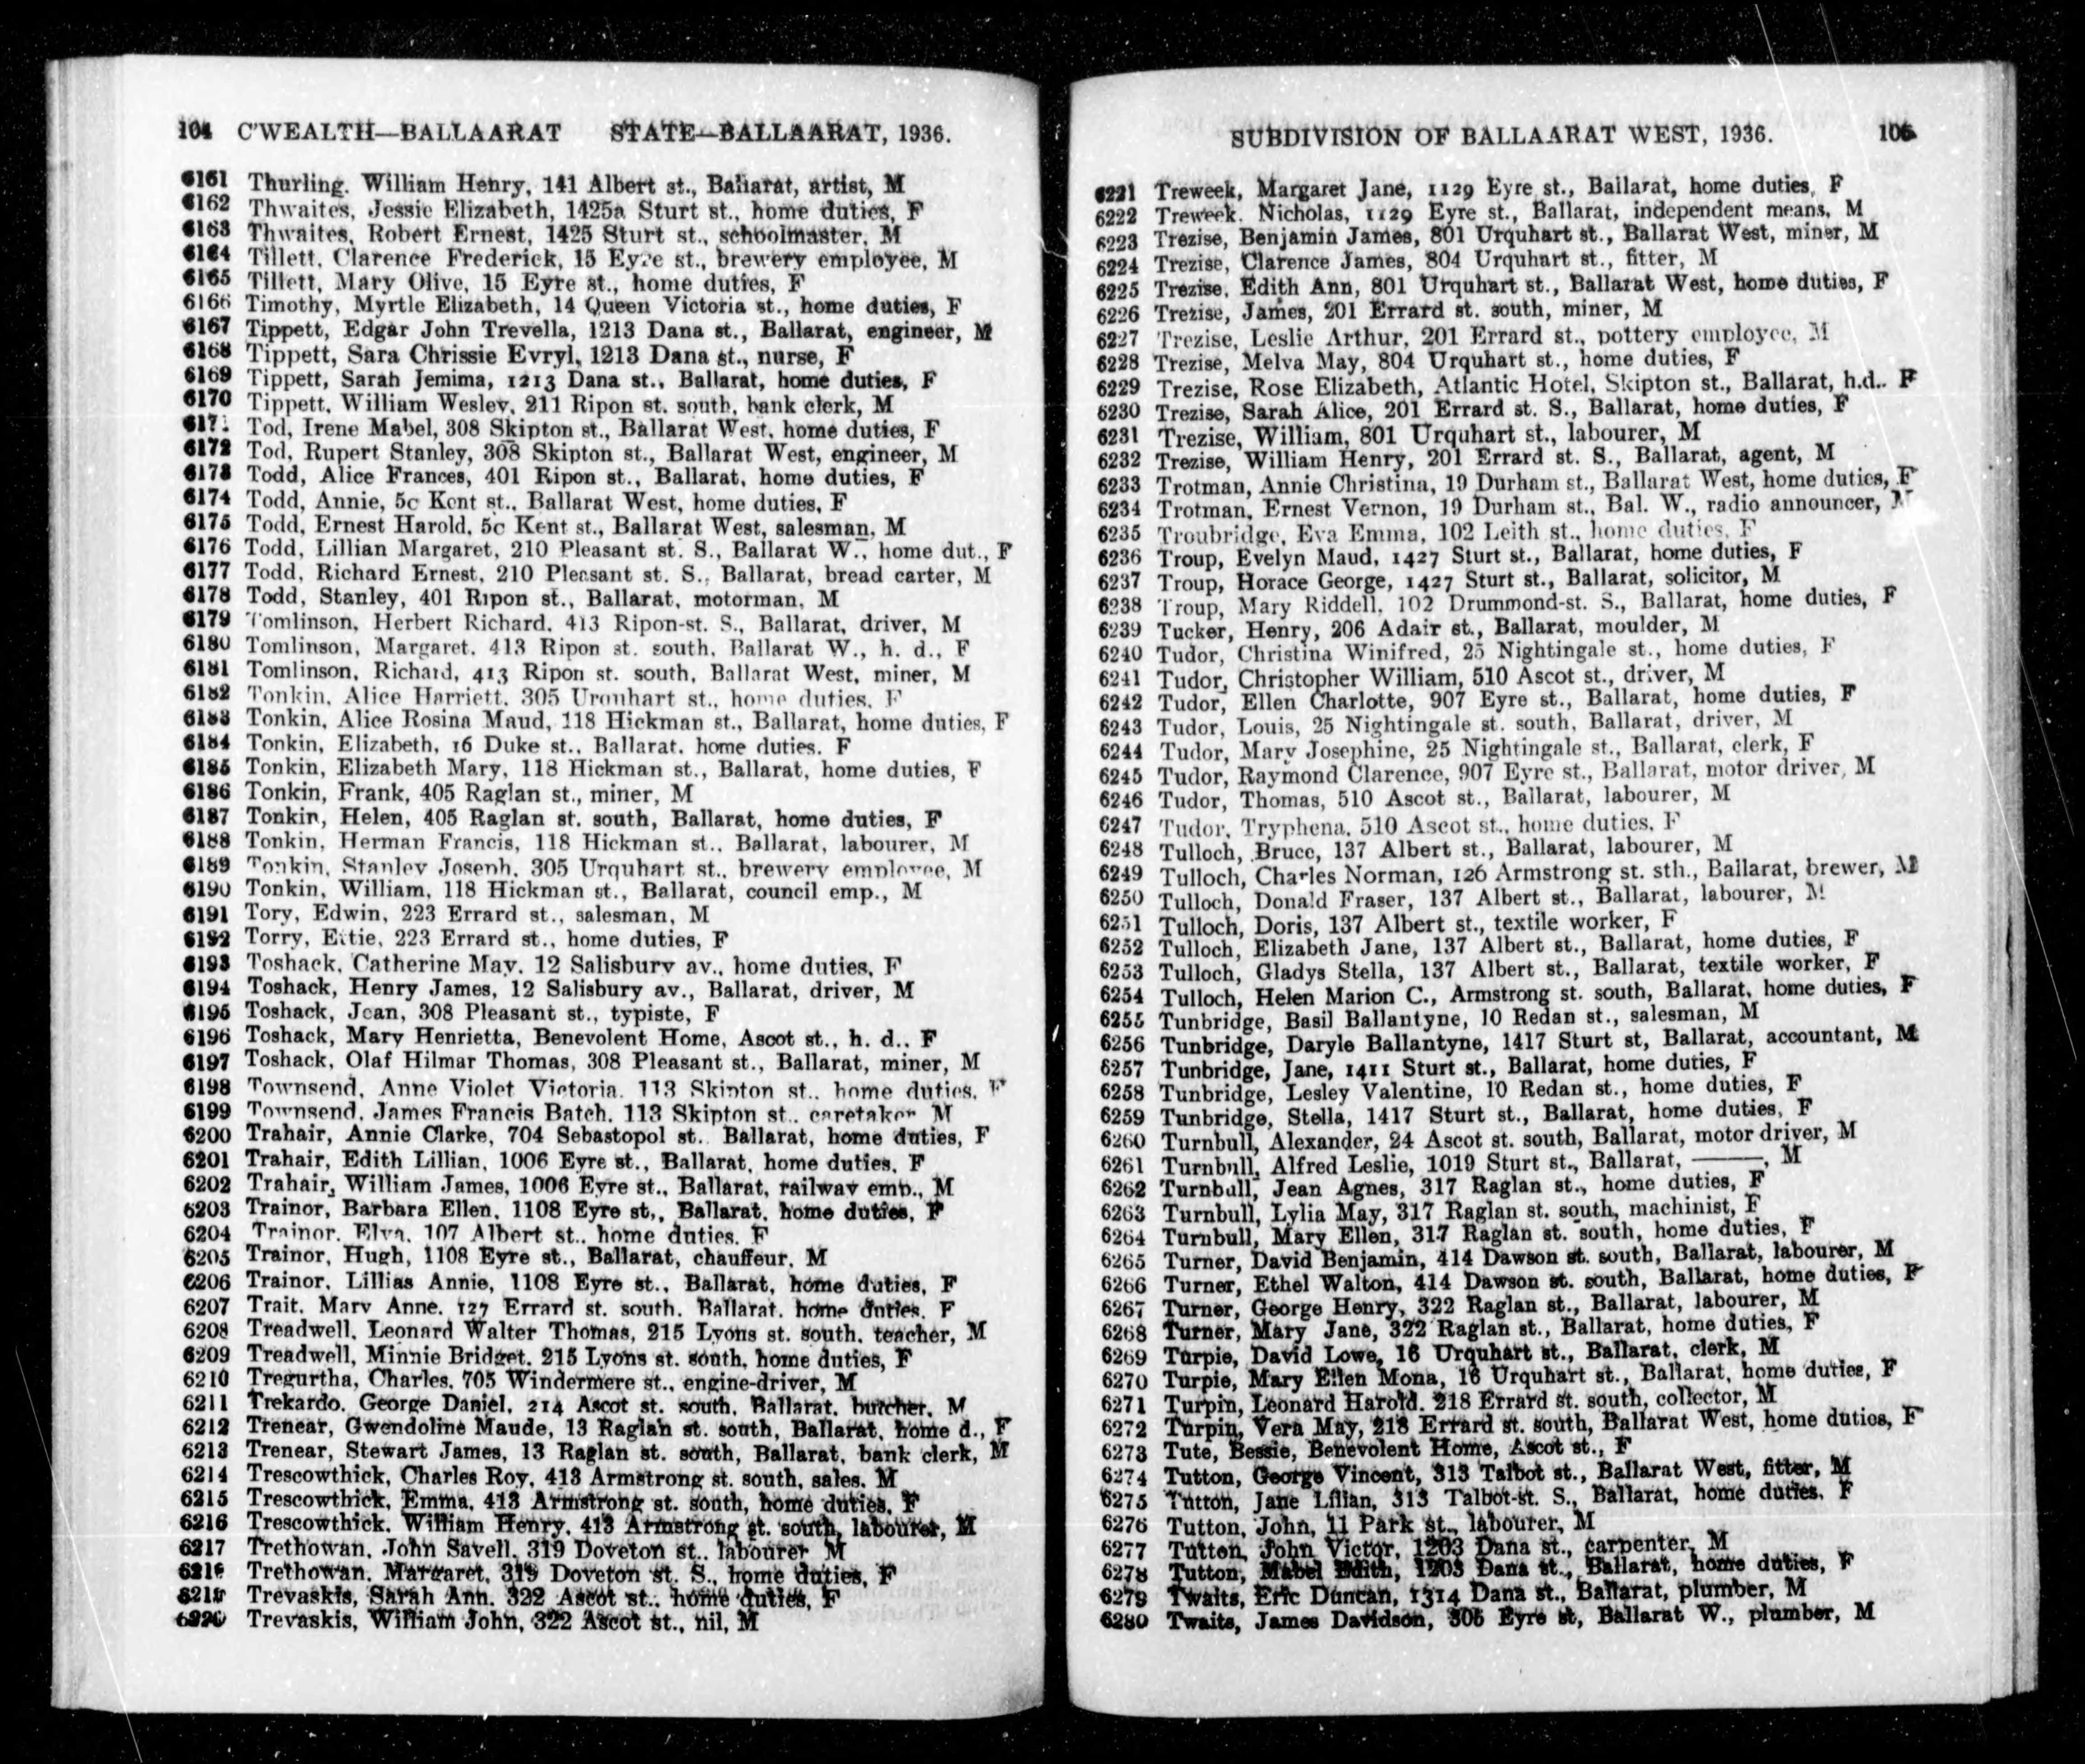 104 C'WEALTH—BALLAARAT STATE—BALLAARAT, 1936.
6161 Thurling. William Henry, 141 Albert st., Ballarat, artist, M
6162 Thwaites, Jessie Elizabeth, 1425a Sturt st., home duties, F
6163 Thwaites, Robert Ernest, 1425 Sturt st., schoolmaster, M
6164 Tillett, Clarence Frederick, 15 Eyre st., brewery employee, M
6165 Tillett, Mary Olive, 15 Eyre st., home duties, F
6166 Timothy, Myrtle Elizabeth, 14 Queen Victoria st., home duties, F
6167 Tippett, Edgar John Trevella, 1213 Dana st., Ballarat, engineer, M
6168 Tippett, Sara Chrissie Evryl, 1213 Dana st., nurse, F
6169 Tippett, Sarah Jemima, 1213 Dana st., Ballarat, home duties, F
6170 Tippett, William Wesley, 211 Ripon st. south, bank clerk, M
617 Tod, Irene Mabel, 308 Skipton st., Ballarat West, home duties, F
6172 Tod, Rupert Stanley, 308 Skipton st., Ballarat West, engineer, M
6173 Todd, Alice Frances, 401 Ripon st., Ballarat, home duties, F
6174 Todd, Annie, 5c Kent st., Ballarat West, home duties, F
6175 Todd, Ernest Harold, 5c Kent st., Ballarat West, salesman, M
6176 Todd, Lillian Margaret, 210 Pleasant st. S., Ballarat W., home dut., F
6177 Todd, Richard Ernest, 210 Pleasant st. S., Ballarat, bread carter, M
6178 Todd, Stanley, 401 Ripon st., Ballarat, motorman, M
6179 Tomlinson, Herbert Richard, 413 Ripon-st. S., Ballarat, driver, M
6180 Tomlinson, Margaret, 413 Ripon st. south, Ballarat W., h. d., F
6181 Tomlinson, Richard, 413 Ripon st. south, Ballarat West, miner, M
6182 Tonkin, Alice Harriett, 305 Urquhart st., home duties, F
6183 Tonkin, Alice Rosina Maud, 118 Hickman st., Ballarat, home duties, F
6184 Tonkin, Elizabeth, 16 Duke st., Ballarat, home duties, F
6185 Tonkin, Elizabeth Mary, 118 Hickman st., Ballarat, home duties, F
6186 Tonkin, Frank, 405 Raglan st., miner, M
6187 Tonkin, Helen, 405 Raglan st. south, Ballarat, home duties, F
6188 Tonkin, Herman Francis, 118 Hickman st., Ballarat, labourer, M
6189 Tonkin, Stanley Joseph, 305 Urquhart st., brewery employee, M
6190 Tonkin, William, 118 Hickman st., Ballarat, council emp., M
6191 Tory, Edwin, 223 Errard st., salesman, M
6192 Torry, Ettie, 223 Errard st., home duties, F
6193 Toshack, Catherine May, 12 Salisbury av., home duties, F
6194 Toshack, Henry James, 12 Salisbury av., Ballarat, driver, M
6195 Toshack, Jean, 308 Pleasant st., typiste, F
6196 Toshack, Mary Henrietta, Benevolent Home, Ascot st., h. d., F
6197 Toshack, Olaf Hilmar Thomas, 308 Pleasant st., Ballarat, miner, M
6198 Townsend, Anne Violet Victoria, 113 Skipton st., home duties, F
6199 Townsend, James Francis Batch, 113 Skipton st., caretaker M
6200 Trahair, Annie Clarke, 704 Sebastopol st. Ballarat, home duties, F
6201 Trahair, Edith Lillian, 1006 Eyre st., Ballarat, home duties, F
6202 Trahair, William James, 1006 Eyre st., Ballarat, railway emp., M
6203 Trainor, Barbara Ellen, 1108 Eyre st., Ballarat, home duties, F
6204 Trainor, Elva, 107 Albert st., home duties, F
6205 Trainor, Hugh, 1108 Eyre st., Ballarat, chauffeur, M
6206 Trainor, Lillias Annie, 1108 Eyre st., Ballarat, home duties, F
6207 Trait, Mary Anne, 127 Errard st. south, Ballarat, home duties, F
6208 Treadwell, Leonard Walter Thomas, 215 Lyons st. south, teacher, M
6209 Treadwell, Minnie Bridget, 215 Lyons st. south, home duties, F
6210 Tregurtha, Charles, 705 Windermere st., engine-driver, M
6211 Trekardo, George Daniel, 214 Ascot st. south, Ballarat, butcher, M
6212 Trenear, Gwendoline Maude, 13 Raglan st. south, Ballarat, home d., F
6213 Trenear, Stewart James, 13 Raglan st. south, Ballarat, bank clerk, M
6214 Trescowthick, Charles Roy, 413 Armstrong st. south, sales, M
6215 Trescowthick, Emma, 413 Armstrong st. south, home duties, F
6216 Trescowthick, William Henry, 413 Armstrong st. south, labourer, M
6217 Trethowan, John Savell, 319 Doveton st., labourer M
6218 Trethowan, Margaret, 319 Doveton st. S., home duties, F
6219 Trevaskis, Sarah Ann, 322 Ascot st., home duties, F
6220 Trevaskis, William John, 322 Ascot st., nil, M
SUBDIVISION OF BALLAARAT WEST, 1936. 105
6221 Treweek, Margaret Jane, 1129 Eyre st., Ballarat, home duties, F
6222 Treweek, Nicholas, 1129 Eyre st., Ballarat, independent means, M
6223 Trezise, Benjamin James, 801 Urquhart st., Ballarat West, miner, M
6224 Trezise, Clarence James, 804 Urquhart st., fitter, M
6225 Trezise, Edith Ann, 801 Urquhart st., Ballarat West, home duties, F
6226 Trezise, James, 201 Errard st. south, miner, M
6227 Trezise, Leslie Arthur, 201 Errard st., pottery employee, M
6228 Trezise, Melva May, 804 Urquhart st., home duties, F
6229 Trezise, Rose Elizabeth, Atlantic Hotel, Skipton st., Ballarat, h.d., F
6230 Trezise, Sarah Alice, 201 Errard st. S., Ballarat, home duties, F
6231 Trezise, William, 801 Urquhart st., labourer, M
6232 Trezise, William Henry, 201 Errard st. S., Ballarat, agent, M
6233 Trotman, Annie Christina, 19 Durham st., Ballarat West, home duties, F
6234 Trotman, Ernest Vernon, 19 Durham st., Bal. W., radio announcer, M
6235 Troubridge, Eva Emma, 102 Leith st., home duties, F
6236 Troup, Evelyn Maud, 1427 Sturt st., Ballarat, home duties, F
6237 Troup, Horace George, 1427 Sturt st., Ballarat, solicitor, M
6238 Troup, Mary Riddell, 102 Drummond-st. S., Ballarat, home duties, F
6239 Tucker, Henry, 206 Adair st., Ballarat, moulder, M
6240 Tudor, Christina Winifred, 25 Nightingale st., home duties, F
6241 Tudor, Christopher William, 510 Ascot st., driver, M
6242 Tudor, Ellen Charlotte, 907 Eyre st., Ballarat, home duties, F
6243 Tudor, Louis, 25 Nightingale st. south, Ballarat, driver, M
6244 Tudor, Mary Josephine, 25 Nightingale st., Ballarat, clerk, F
6245 Tudor, Raymond Clarence, 907 Eyre st., Ballarat, motor driver, M
6246 Tudor, Thomas, 510 Ascot st., Ballarat, labourer, M
6247 Tudor, Tryphena, 510 Ascot st., home duties, F
6248 Tulloch, Bruce, 137 Albert st., Ballarat, labourer, M
6249 Tulloch, Charles Norman, 126 Armstrong st. sth., Ballarat, brewer, M
6250 Tulloch, Donald Fraser, 137 Albert st., Ballarat, labourer, M
6251 Tulloch, Doris, 137 Albert st., textile worker, F
6252 Tulloch, Elizabeth Jane, 137 Albert st., Ballarat, home duties, F
6253 Tulloch, Gladys Stella, 137 Albert st., Ballarat, textile worker, F
6254 Tulloch, Helen Marion C., Armstrong st. south, Ballarat, home duties, F
6255 Tunbridge, Basil Ballantyne, 10 Redan st., salesman, M
6256 Tunbridge, Daryle Ballantyne, 1417 Sturt st, Ballarat, accountant, M
6257 Tunbridge, Jane, 1411 Sturt st., Ballarat, home duties, F
6258 Tunbridge, Lesley Valentine, 10 Redan st., home duties, F
6259 Tunbridge, Stella, 1417 Sturt st., Ballarat, home duties, F
6260 Turnbull, Alexander, 24 Ascot st. south, Ballarat, motor driver, M
6261 Turnbull, Alfred Leslie, 1019 Sturt st., Ballarat, ———, M
6262 Turnbull, Jean Agnes, 317 Raglan st., home duties, F
6263 Turnbull, Lylia May, 317 Raglan st. south, machinist, F
6264 Turnbull, Mary Ellen, 317 Raglan st. south, home duties, F
6265 Turner, David Benjamin, 414 Dawson st. south, Ballarat, labourer, M
6266 Turner, Ethel Walton, 414 Dawson st. south, Ballarat, home duties, F
6267 Turner, George Henry, 322 Raglan st., Ballarat, labourer, M
6268 Turner, Mary Jane, 322 Raglan st., Ballarat, home duties, F
6269 Turpie, David Lowe, 16 Urquhart st., Ballarat, clerk, M
6270 Turpie, Mary Ellen Mona, 16 Urquhart st., Ballarat, home duties, F
6271 Turpin, Leonard Harold, 218 Errard st. south, collector, M
6272 Turpin, Vera May, 218 Errard st. south, Ballarat West, home duties, F
6273 Tute, Bessie, Benevolent Home, Ascot st., F
6274 Tutton, George Vincent, 313 Talbot st., Ballarat West, fitter, M
6275 Tutton, Jane Lilian, 313 Talbot-st. S., Ballarat, home duties, F
6276 Tutton, John, 11 Park st., labourer, M
6277 Tutton, John Victor, 1203 Dana st., carpenter, M
6278 Tutton, Mabel Edith, 1203 Dana st., Ballarat, home duties, F
6279 Twaits, Eric Duncan, 1314 Dana st., Ballarat, plumber, M
6280 Twaits, James Davidson, 305 Eyre st, Ballarat W., plumber, M